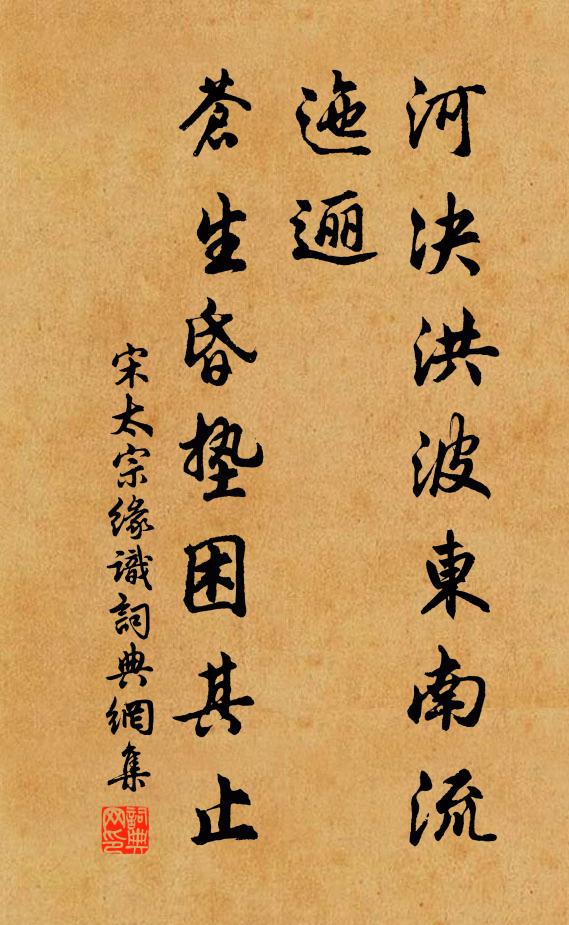 河決洪波東南流
迤逦
蒼生昏墊困其止
宋太宗緣識詞典網集
詞典
网印